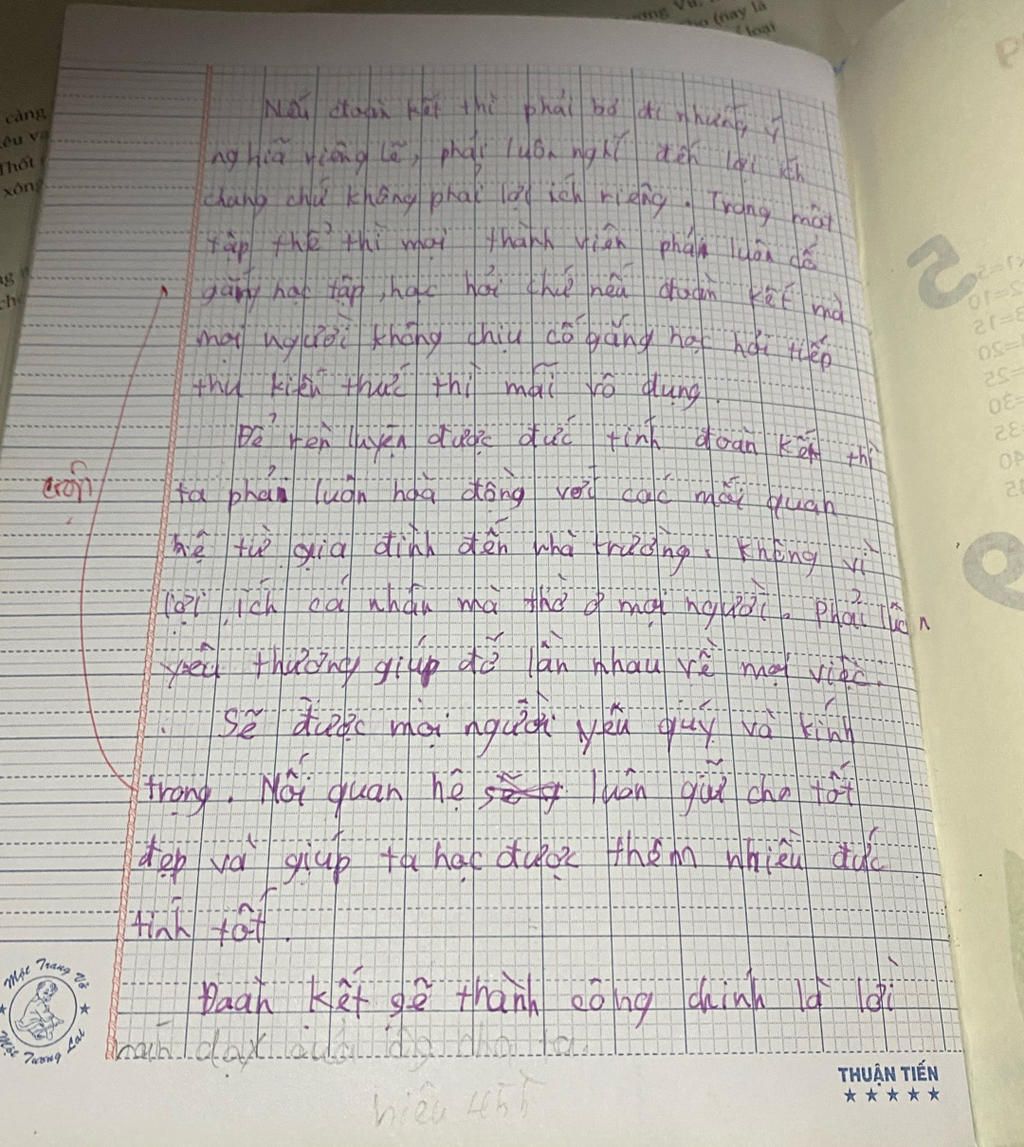 ng Vu,
(nay là
loại
càng
Thốt
xông
Nếu đoàn kết thì phải bỏ đi những ý
nghĩa riêng lẽ, phải luôn nghĩ đến lợi ích
chung chứ không phải lợi ích riêng. Trong một
tập thể thì mọi thành viên phải luôn cố
gắng học tập, học hỏi chứ nếu đoàn kết mà
mọi người không chịu cố gắng học hỏi tiếp
thu kiến thức thì mãi vô dụng
Để rèn luyện được đức tính đoàn kết thì
ta phải luôn hoà đồng với các mối quan
hệ từ gia đình đến nhà trường, không vì
lợi ích cá nhân mà thờ ơ mọi người. Phải luôn
yêu thương giúp đỡ lẫn nhau về mọi việc.
Sẽ được mọi người yêu quý và kính
trọng. Mối quan hệ luôn giữ cho tốt
đẹp và giúp ta học được thêm nhiều đức
tính tốt.
Đoàn kết sẽ thành công chính là lời
dạy
Một Trang Vở
Một Tương Lai
THUẬN TIẾN
5
9